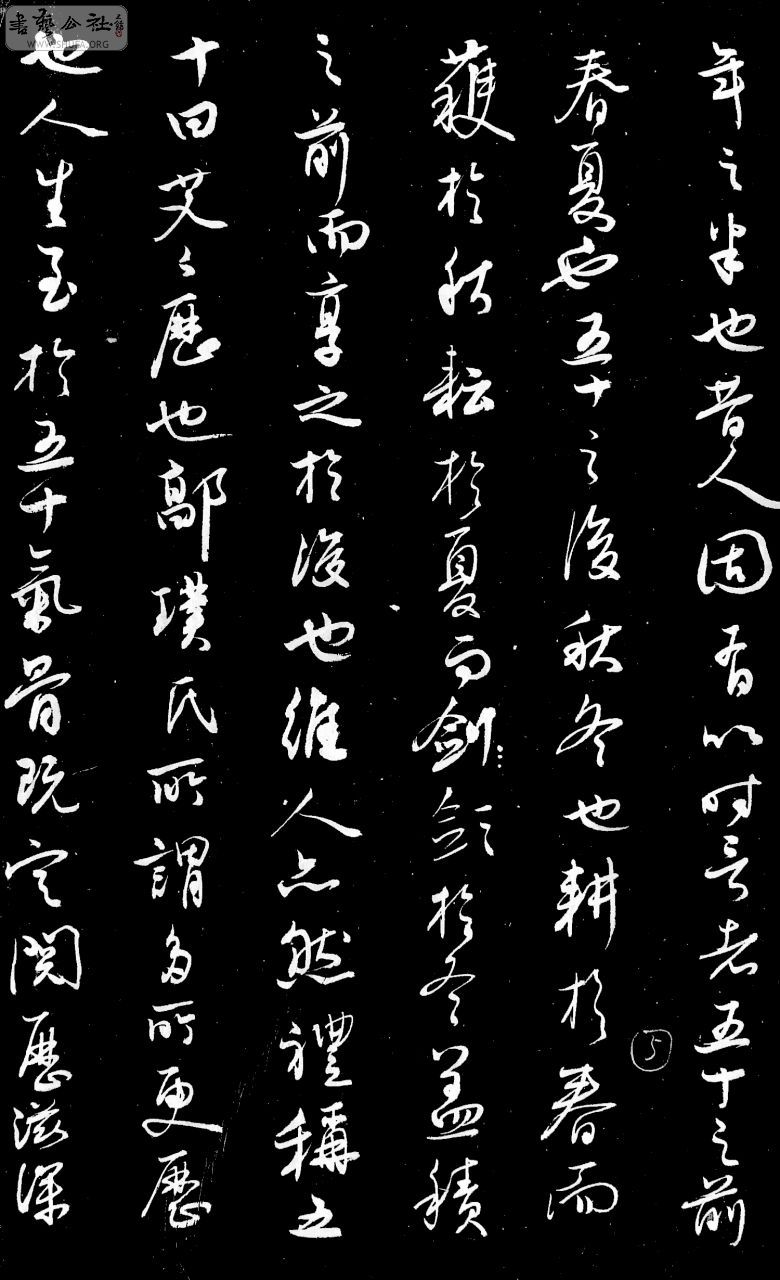 書藝公社
WWW.SHUFA.ORG
年之半也昔人固有以時言者五十之前
春夏也五十之後秋冬也耕於春而
穫於秋耘於夏而劍斂於冬蓋積
之前而享之於後也維人亦然禮稱五
十曰艾々歷也郭璞氏所謂多所更歷
也人生至於五十氣骨既定閱歷滋深
5